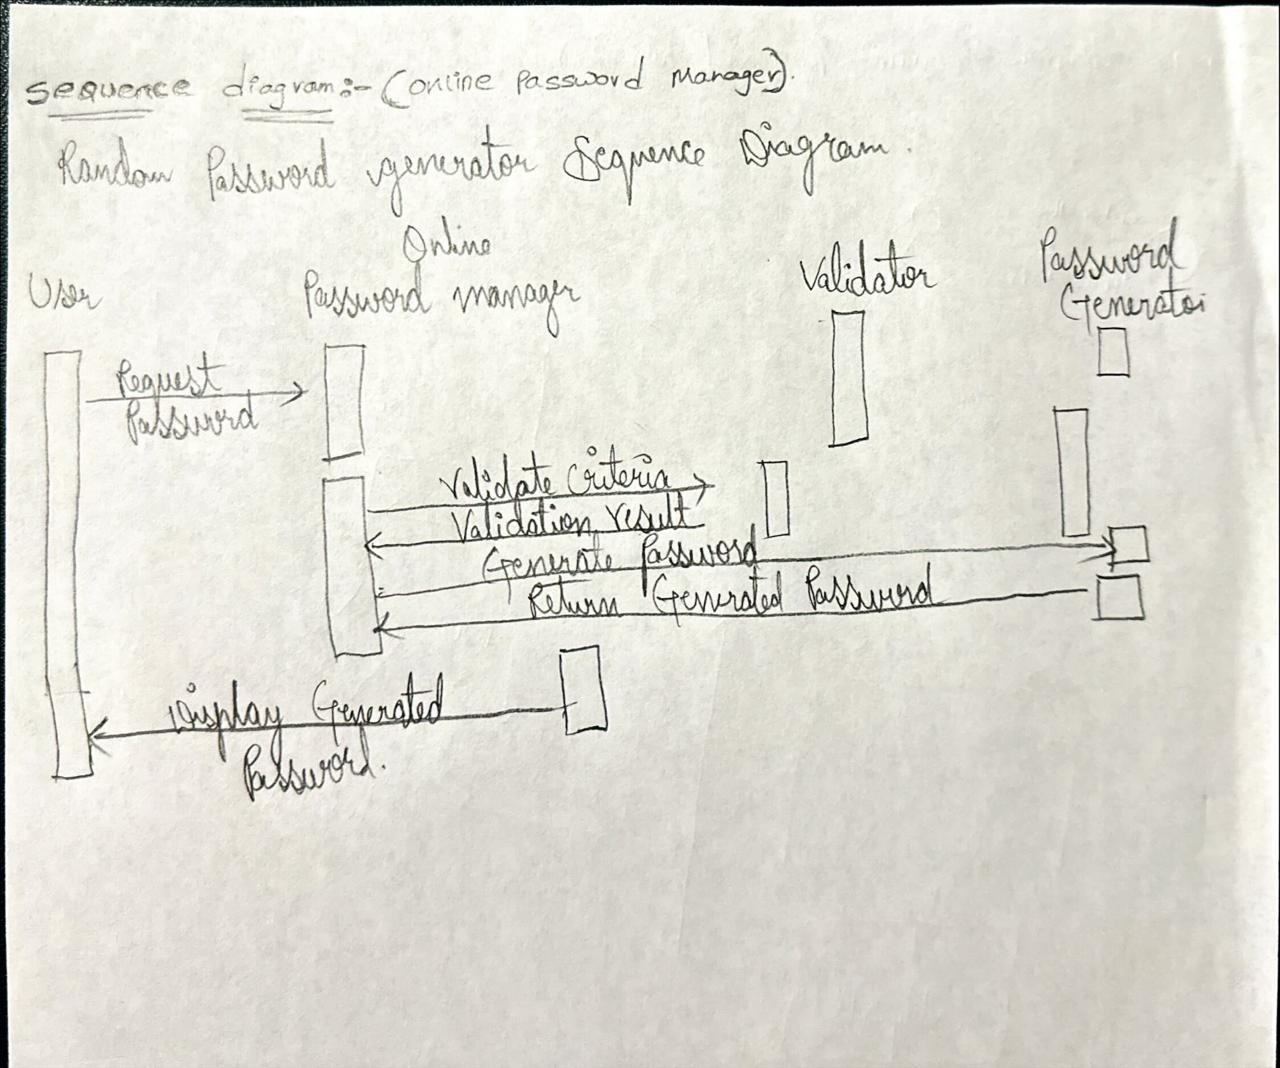 sequence diagram:- (online Password Manager).
Random Password generator Sequence Diagram.
User
Online
Password manager
Validator
Password
Generator
Request
Password
Validate Criteria
Validation result
Generate Password
Return Generated Password
Display Generated
Password.